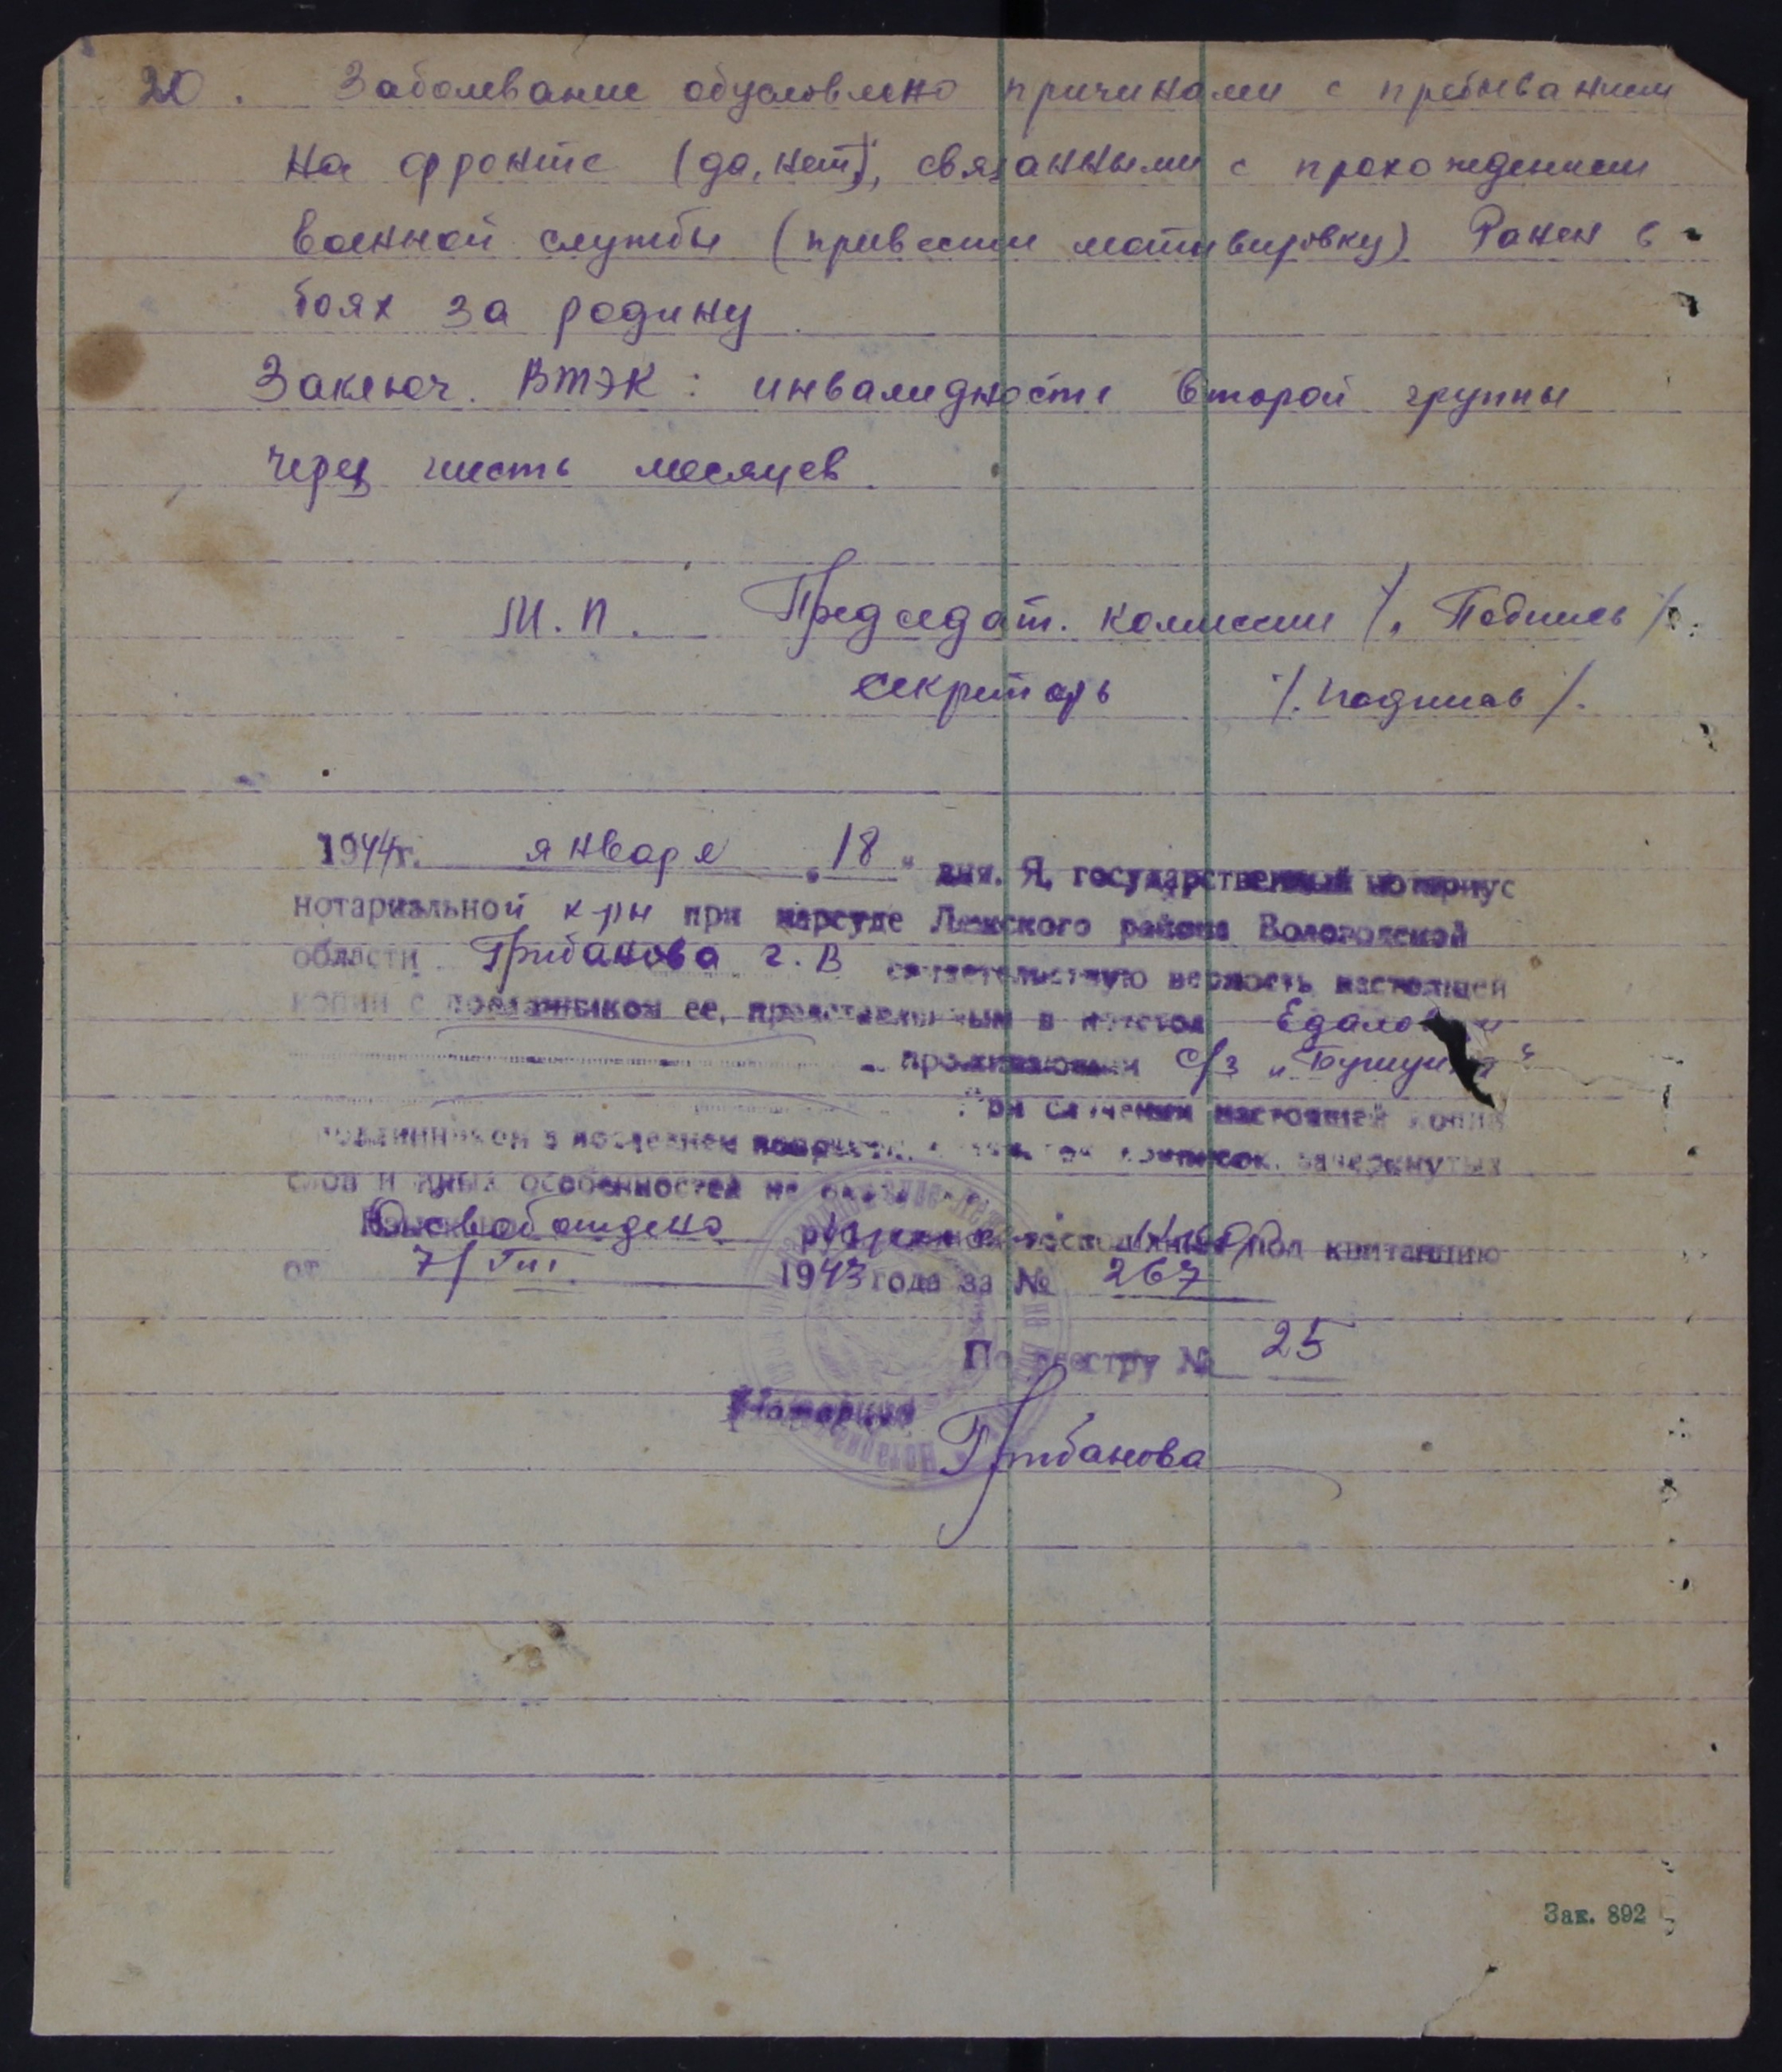 20. Заболевание обусловлено причинами с пребыванием
на фронте (да, нет), связанными с прохождением
военной службы (привести мотивировку) Ранен в
боях за родину
Заключ. ВТЭК: инвалидность второй группы
через шесть месяцев.
М.П. Председат. комиссии /. Подпись /.
Секретарь /. Подпись /.
1944г. января "18" дня. Я, государственный нотариус
нотариальной к-ры при нарсуде Лежского района Вологодской
области Грибанова Г.В свидетельствую верность настоящей
копии с подлинником ее, представленным в
проживающ с/з
При сличении настоящей копии
с подлинником в последнем приписок, зачеркнутых
слов и иных особенностей не
Освобождено под квитанцию
от 7/VIII 1943 года за № 267
По реестру № 25
Нотариус
Грибанова
Зак. 892